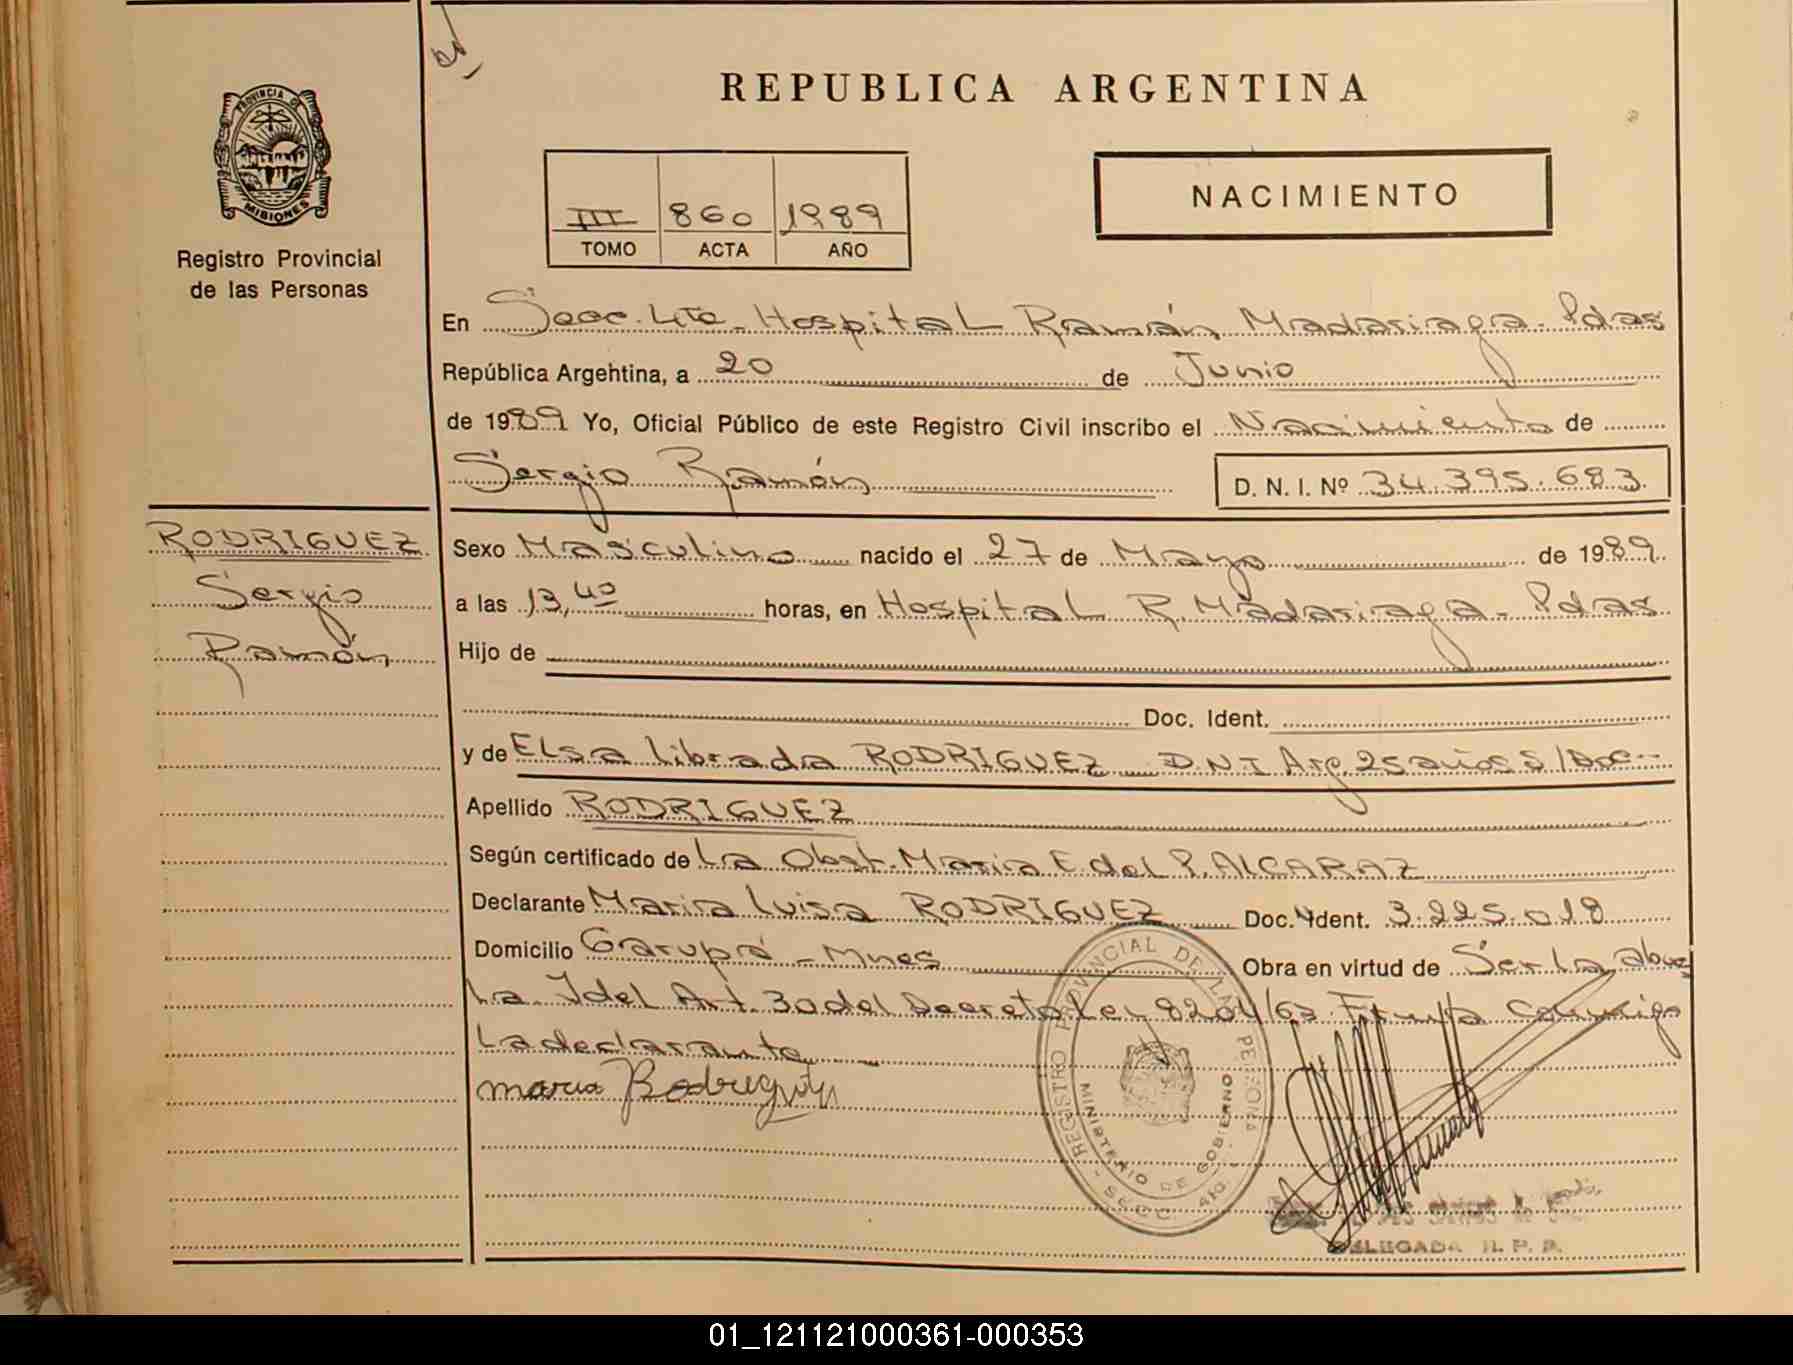 REPUBLICA ARGENTINA
PROVINCIA DE
MISIONES
Registro Provincial
de las Personas
III 860 1989
TOMO ACTA AÑO
NACIMIENTO
En Secc. 4ta - Hospital Ramón Madariaga - Pdas
República Argentina, a 20 de Junio
de 1989 Yo, Oficial Público de este Registro Civil inscribo el Nacimiento de
Sergio Ramón D. N. I. Nº 34.395.683
RODRIGUEZ
Sergio
Ramón
Sexo Masculino nacido el 27 de Mayo de 1989
a las 13,40 horas, en Hospital R. Madariaga - Pdas
Hijo de
Doc. Ident.
y de Elsa Librada RODRIGUEZ D.N.I Arg. 25 años S/Doc.-
Apellido RODRIGUEZ
Según certificado de La Obst. Maria E. del P. ALCARAZ
Declarante Maria Luisa RODRIGUEZ Doc. Ident. 3.225.018
Domicilio Garupá - Mnes Obra en virtud de Ser la abue
la I del Art. 30 del Decreto Ley 8204/63 Firma Conmigo
La declarante
maria Rodriguez
REGISTRO PROVINCIAL DE LAS PERSONAS
MINISTERIO DE GOBIERNO
DELEGADA R. P. P.
01_121121000361-000353